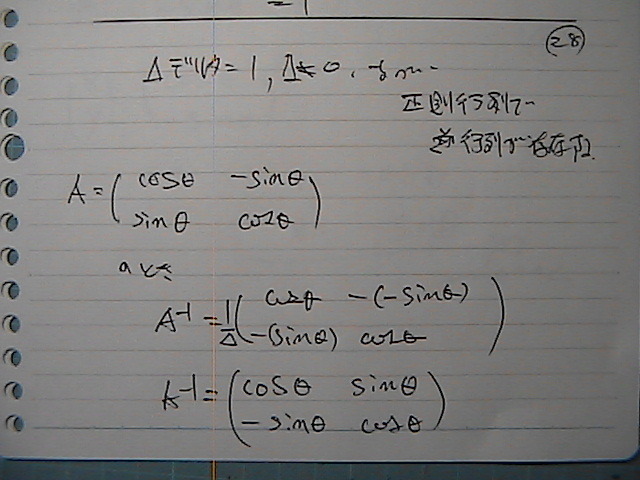 = 1
28
Δデルタ = 1, Δ≠0,
正則行列で
逆行列が存在
A = ( cosθ -sinθ
sinθ cosθ )
のとき
A⁻¹ = 1/Δ ( cosθ -(-sinθ)
-(sinθ) cosθ )
A⁻¹ = ( cosθ sinθ
-sinθ cosθ )